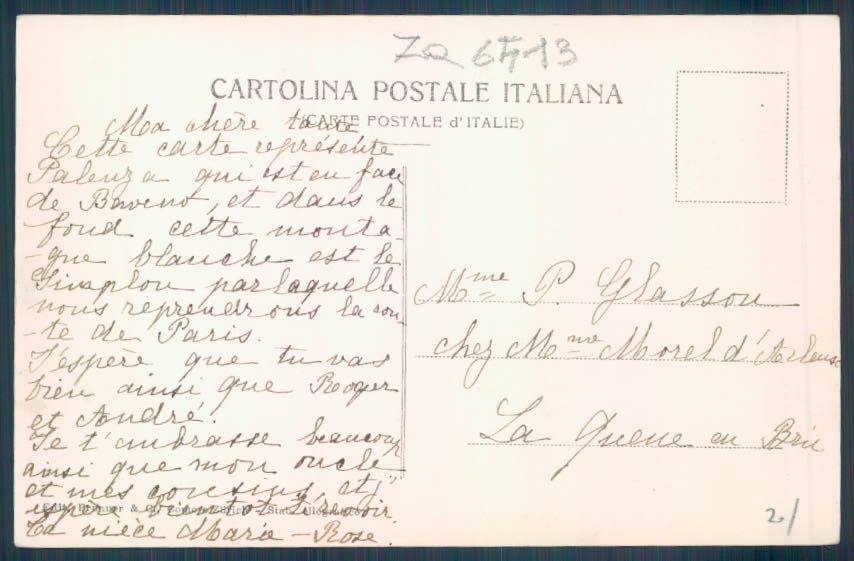 Za 6513
CARTOLINA POSTALE ITALIANA
(CARTE POSTALE d'ITALIE)
Ma chère tante
Cette carte représente
Palenza qui est en face
de Baveno, et dans le
fond cette monta-
-gne blanche est le
Simplon par laquelle
nous reprendrons la rou-
-te de Paris.
J'espère que tu vas
bien ainsi que Roger
et André.
Je t'embrasse beaucoup
ainsi que mon oncle
et mes cousins, et j'
espère bientôt te revoir.
Ta nièce Marie-Rose.
Edit. Brunner & C.
Mme P. Glasson
chez Mme Morel d'Arleux
La Queue en Brie
2/